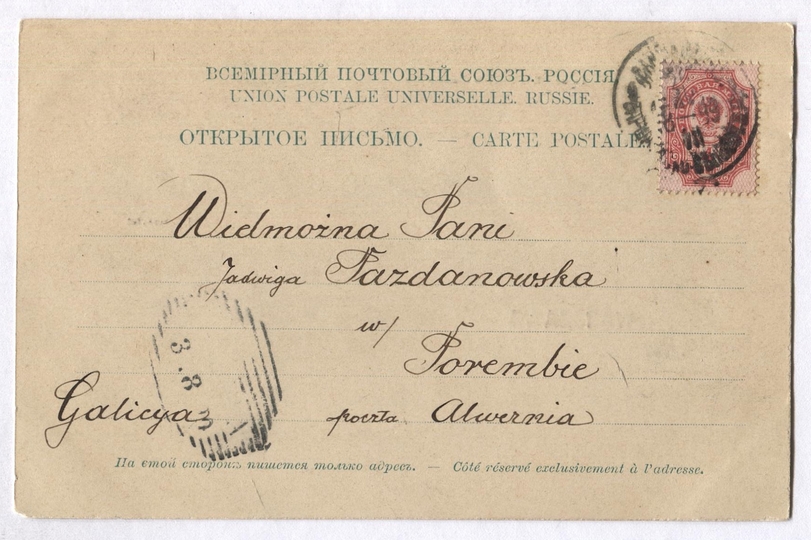 ВСЕМІРНЫЙ ПОЧТОВЫЙ СОЮЗЪ. РОССІЯ
UNION POSTALE UNIVERSELLE. RUSSIE.
ОТКРЫТОЕ ПИСЬМО. — CARTE POSTALE
Wielmożna Pani
Jadwiga Pazdanowska
w/
Porembie
Galicya poczta Alwernia
3.8
На етой сторонѣ пишется только адресъ. — Côté réservé exclusivement à l'adresse.